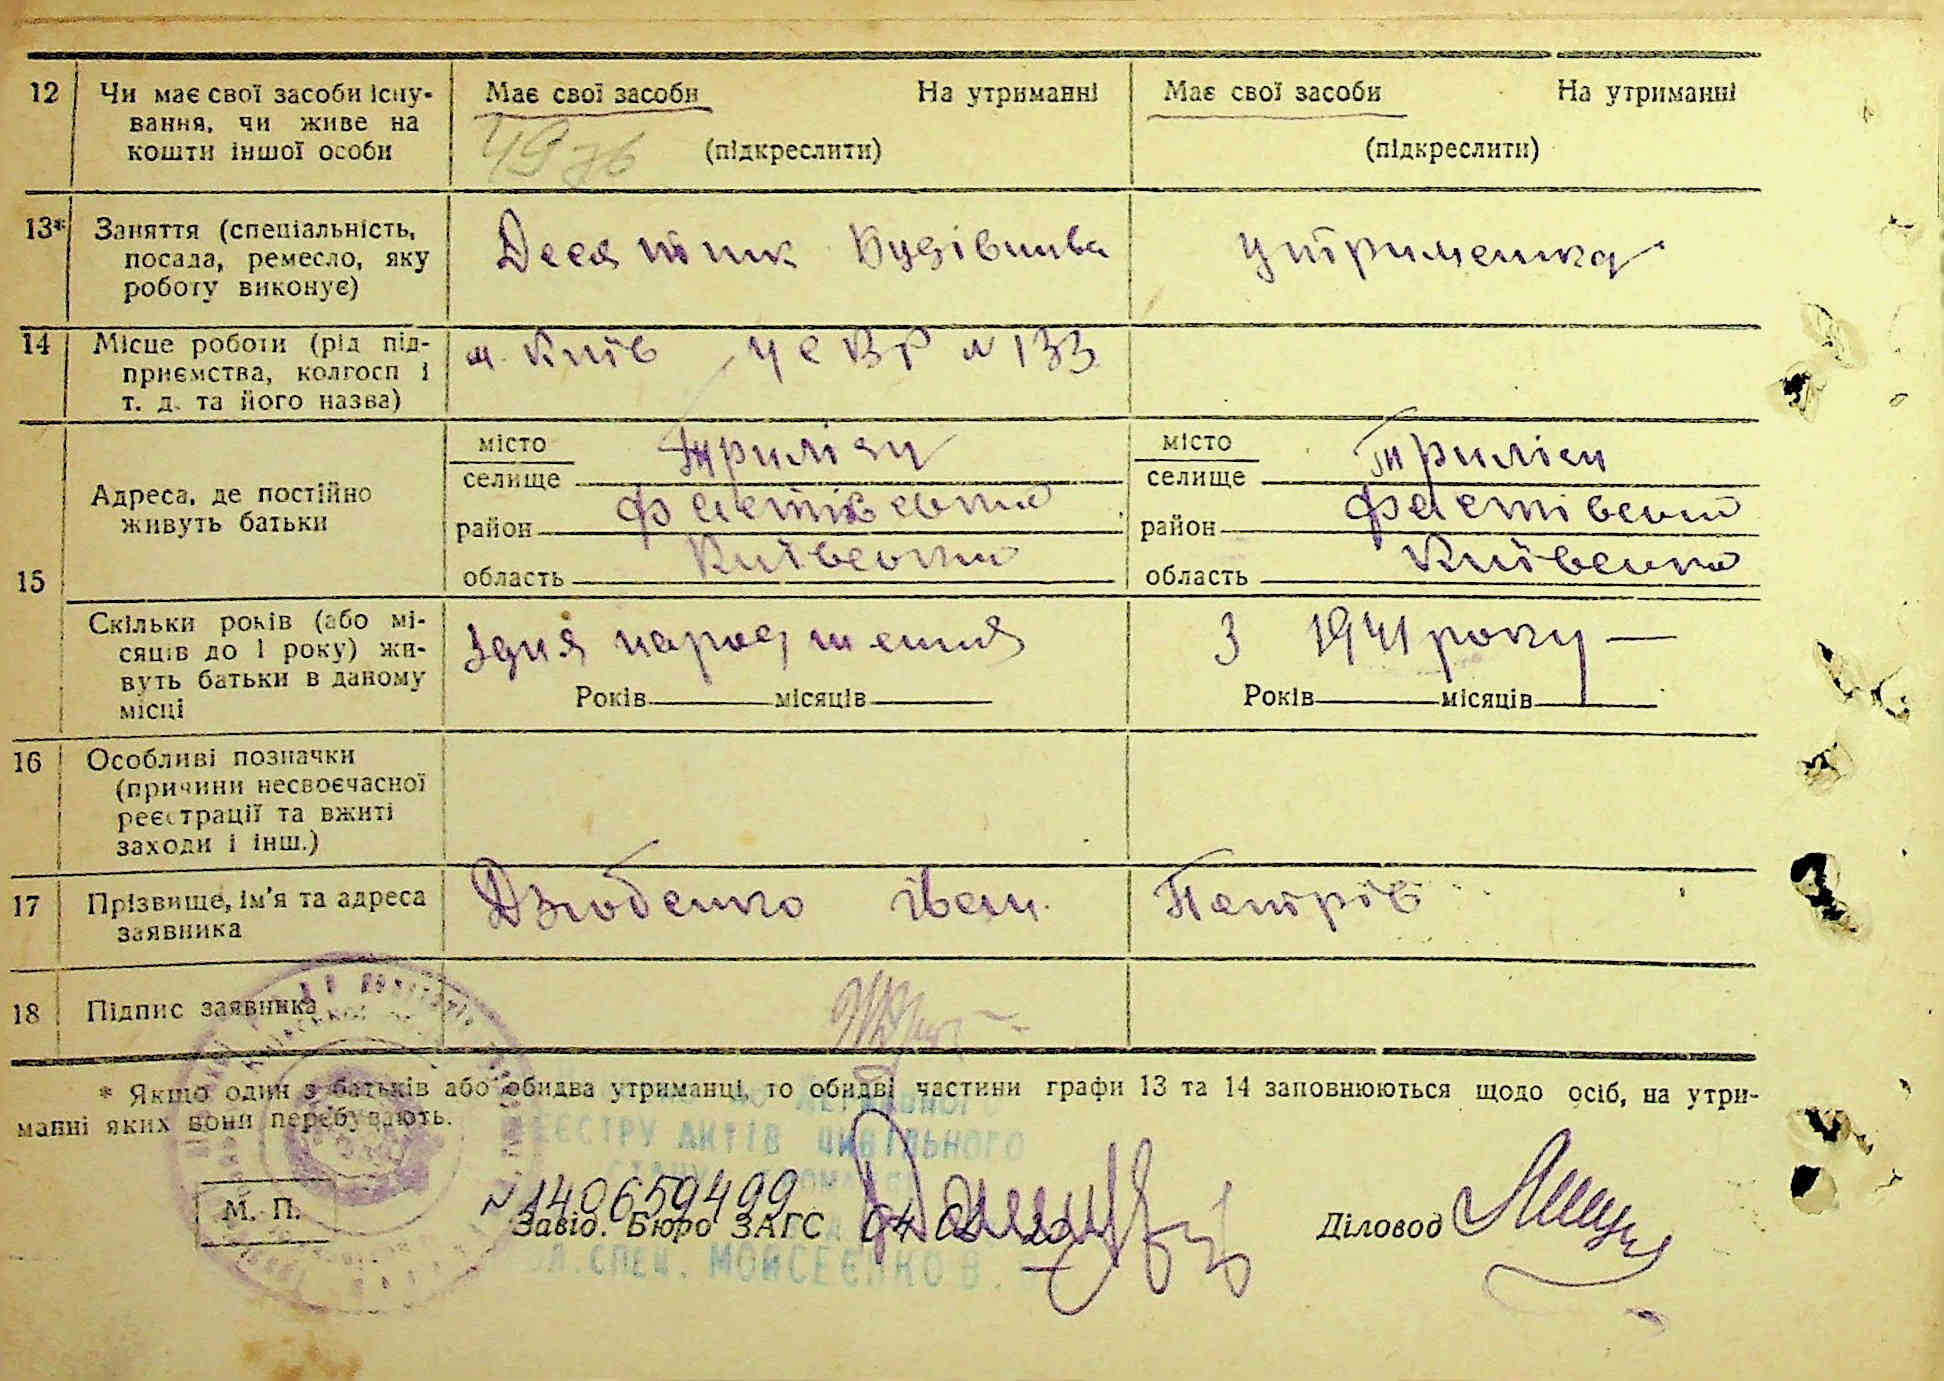 12 Чи має свої засоби існу- Має свої засоби На утриманні Має свої засоби На утриманні
вання, чи живе на
кошти іншої особи (підкреслити) (підкреслити)
13* Заняття (спеціальність, Десятник Будівництва утриманка
посада, ремесло, яку
роботу виконує)
14 Місце роботи (рід під- м. Київ УСВР №133
приємства, колгосп і
т. д. та його назва)
15 Адреса, де постійно живуть батьки
місто селище Триліси місто селище Триліси
район Фастівська район Фастівська
область Київська область Київська
Скільки років (або мі- З дня народження З 1941 року —
сяців до 1 року) жи-
вуть батьки в даному Років місяців Років місяців
місці
16 Особливі позначки
(причини несвоєчасної
реєстрації та вжиті
заходи і інш.)
17 Прізвище, ім'я та адреса Дзюбенко Іван Петрів
заявника
18 Підпис заявника
* Якщо один з батьків або обидва утриманці, то обидві частини графи 13 та 14 заповнюються щодо осіб, на утри-
манні яких вони перебувають.
РЕЄСТРУ АКТІВ ЦИВІЛЬНОГО
№140659499
М. П. Завід. Бюро ЗАГС Діловод
СПЕЦ. МОЙСЕЄНКО В.